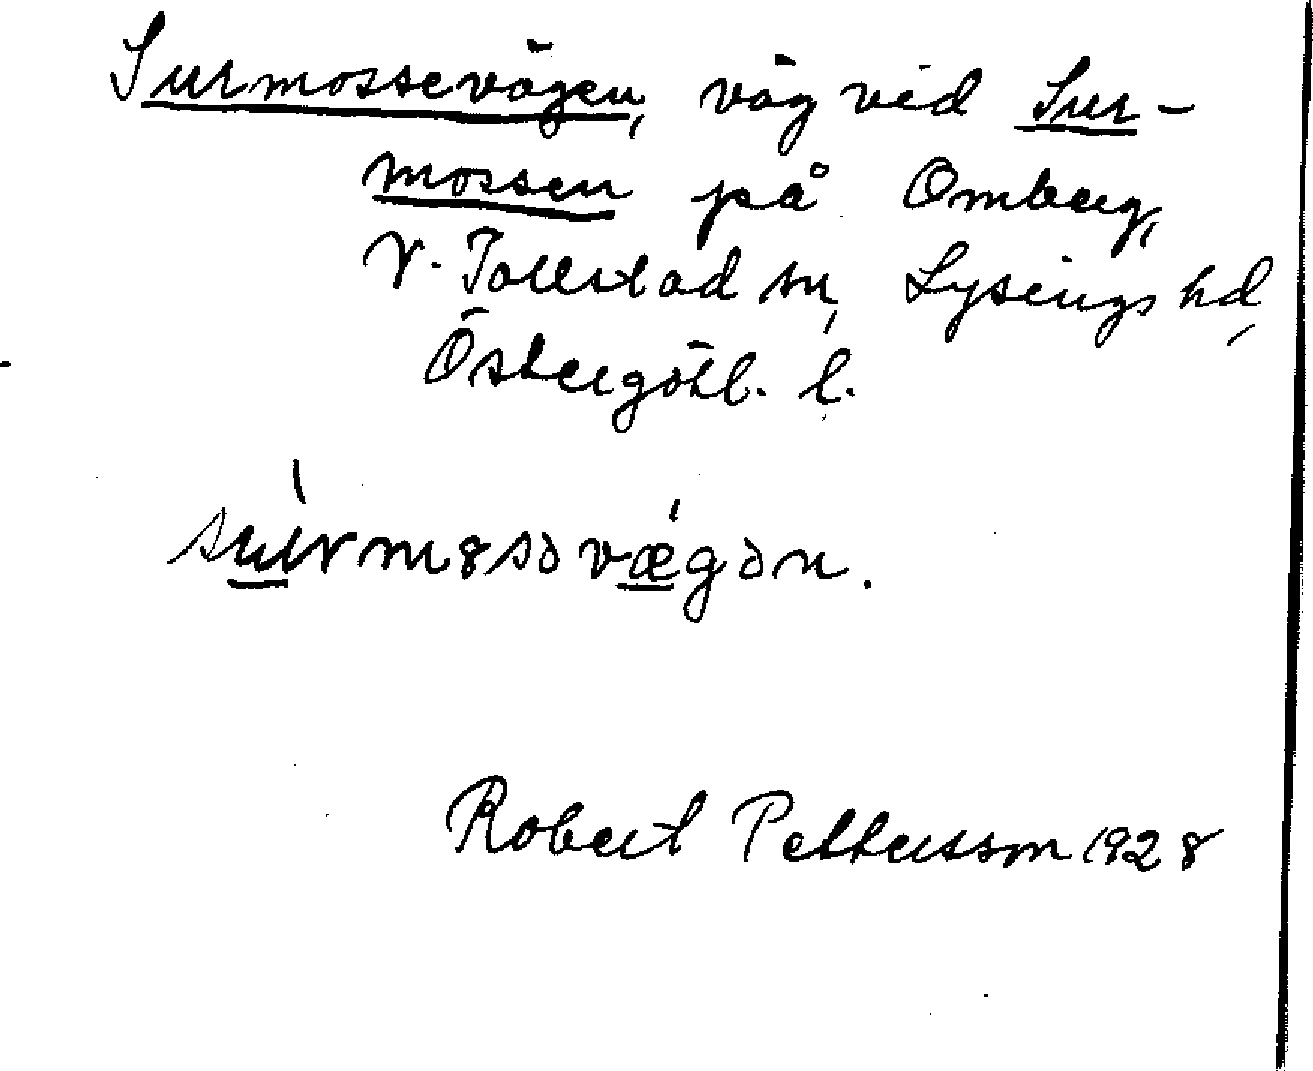 Surmossevägen, väg vid Sur-
mossen på Omberg,
V. Tollstad sn, Lysings hd,
Östergötl. l.
su̲rm8səvæ̲gən.
Robert Pettersson 1928